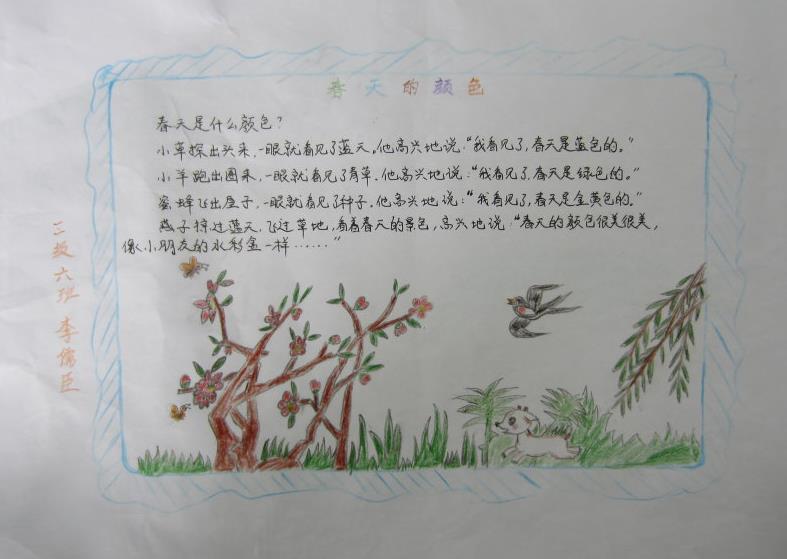 春天的颜色
春天是什么颜色？
小草探出头来，一眼就看见了蓝天。他高兴地说：“我看见了，春天是蓝色的。”
小羊跑出圈来，一眼就看见了青草。他高兴地说：“我看见了，春天是绿色的。”
蜜蜂飞出屋子，一眼就看见了种子。他高兴地说：“我看见了，春天是金黄色的。”
燕子掠过蓝天，飞过草地，看着春天的景色，高兴地说：“春天的颜色很美很美，
像小朋友的水彩盒一样……”
三级六班 李儒臣